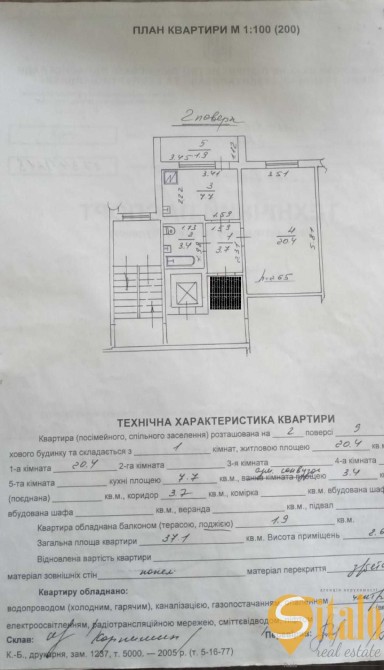 ПЛАН КВАРТИРИ М 1:100 (200)
2 поверх
5
3.45 1.9
1.12
3.41
2.51
3
7.7
2.22
1.59
1.93
2
3.4
1.59
1
3.7
4
20.4
5.81
h-2.65
ТЕХНІЧНА ХАРАКТЕРИСТИКА КВАРТИРИ
Квартира (посімейного, спільного заселення) розташована на 2 поверсі 9
хового будинку та складається з 1 кімнат, житловою площею 20,4 кв.м
1-а кімната 20,4 2-га кімната 3-я кімната 4-а кімната
5-та кімната кухні площею 7.7 кв.м., ванна кімната площею 3.4
(поєднана) кв.м., коридор 3.7 кв.м., комірка кв.м. вбудована шафа
вбудована шафа кв.м., веранда кв.м., підвал
Квартира обладнана балконом (терасою, лоджією) 1.9 кв.м.
Загальна площа квартири 37.1 кв.м. Висота приміщень
Відновлена вартість квартири
матеріал зовнішніх стін панел матеріал перекриття
Квартиру обладнано:
водопроводом (холодним, гарячим), каналізацією, газопостачанням, опаленням
електроосвітленням, радіотрансляційною мережею, сміттєзводом
Склав:
К.-Б., друкарня, зам. 1237, т. 5000. — 2005 р. (т. 5-16-77)
Sitalo
real estate